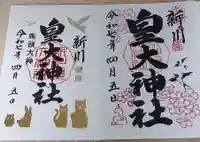 新川
皇大神社
馬頭大神
令和七年四月五日
新川
皇大神社
令和七年四月五日